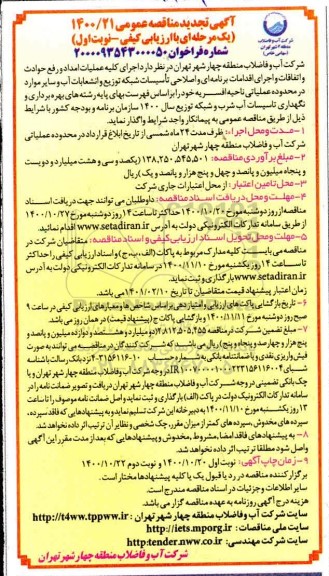 آگهی تجدید مناقصه عمومی ۱۴۰۰/۲۱
(یک مرحله‌ای با ارزیابی کیفی – نوبت اول)
شماره فراخوان ۲۰۰۰۰۹۳۵۴۳۰۰۰۰۵۰
شرکت آب و فاضلاب
منطقه ۴ شهر تهران
(سهامی خاص)
شرکت آب و فاضلاب منطقه چهار شهر تهران در نظر دارد اجرای کلیه عملیات امداد و رفع حوادث
و اتفاقات و اجرای اقدامات برنامه‌ای و اصلاحی تأسیسات شبکه توزیع و انشعابات آب و سایر موارد
در محدوده عملیاتی ناحیه افسریه خود را بر اساس فهرست بهای پایه رشته های بهره برداری و
نگهداری تاسیسات آب شرب و شبکه توزیع سال ۱۴۰۰ سازمان برنامه و بودجه کشور با شرایط
ذیل از طریق مناقصه عمومی به پیمانکار واجد شرایط واگذار نماید.
۱- مدت و محل اجرا: ظرف مدت ۲۴ ماه شمسی از تاریخ ابلاغ قرارداد در محدوده عملیاتی
۲- مبلغ برآوردی مناقصه: ۱۳۸,۲۵۰,۵۴۵,۵۰۱ (یکصد و سی و هشت میلیارد و دویست
و پنجاه میلیون و پانصد و چهل و پنج هزار و پانصد و یک) ریال
۳- محل تامین اعتبار: از محل اعتبارات جاری شرکت
۴- مهلت و محل دریافت اسناد مناقصه: داوطلبان می توانند جهت دریافت اسناد
مناقصه از روز دوشنبه مورخ ۱۴۰۰/۱۰/۲۰ حداکثر تا ساعت ۱۴ روز دوشنبه مورخ ۱۴۰۰/۱۰/۲۷
از طریق سامانه تدارکات الکترونیکی دولت به آدرس www.setadiran.ir اقدام نمایند.
۵- مهلت و محل تحویل اسناد ارزیابی کیفی و اسناد مناقصه: متقاضیان شرکت در
مناقصه می بایست کلیه مدارک مربوط به پاکت (الف، ب، ج) و اسناد ارزیابی کیفی را حداکثر
تا ساعت ۱۴ روز یکشنبه مورخ ۱۴۰۰/۱۱/۱۰ در سامانه تدارکات الکترونیکی دولت به آدرس
www.setadiran.ir بارگذاری و ثبت نمایند.
زمان اعتبار پیشنهاد قیمت متقاضیان تا تاریخ ۱۴۰۱/۰۲/۱۰ می باشد.
۶- تاریخ بازگشایی پاکت های ارزیابی و امتیازدهی بر اساس شاخص ها و معیارهای ارزیابی کیفی در ساعت ۹
صبح روز دوشنبه مورخ ۱۴۰۰/۱۱/۱۱ و بازگشایی پاکات ج (پیشنهاد قیمت) در همان روز می باشد.
۷- مبلغ تضمین شرکت در مناقصه ۲,۸۱۲,۵۰۵,۴۵۵ (دو میلیارد و هشتصد و دوازده میلیون و پانصد و
پنج هزار و چهارصد و پنجاه و پنج) ریال می باشد که شرکت کنندگان در مناقصه می توانند به صورت
چک بانکی تضمینی در وجه شرکت آب و فاضلاب منطقه چهار شهر تهران دریافت و تصویر ضمانت نامه را در
سامانه تدارکات الکترونیک دولت در پاکت (الف) بارگذاری و ثبت نماید و اصل ضمانت نامه موصوف را تا ساعت
۱۳ روز یکشنبه مورخ ۱۴۰۰/۱۱/۱۰ به دبیرخانه این شرکت تسلیم نماید و به پیشنهادهایی که فاقد سپرده،
سپرده های مخدوش، سپرده های کمتر از میزان مقرر، چک شخصی و نظایر آن ترتیب اثر داده نخواهد شد.
۸- به پیشنهادهای فاقد امضا، مشروط، مخدوش و پیشنهادهایی که بعد از مدت مقرر این آگهی
واصل شود مطلقا ترتیب اثر داده نخواهد شد.
۹- زمان چاپ آگهی: نوبت اول ۱۴۰۰/۱۰/۲۰ و نوبت دوم ۱۴۰۰/۱۰/۲۲
برگزار کننده مناقصه در رد یا قبول یک یا کلیه پیشنهادها مختار است.
سایر اطلاعات و جزئیات در اسناد مناقصه مندرج است.
هزینه درج آگهی روزنامه به عهده مناقصه گزار می باشد.
سایت شرکت آب و فاضلاب منطقه چهار شهر تهران: http://t4ww.tppww.ir
سایت ملی مناقصات: http://iets.mporg.ir
سایت شرکت مهندسی: http:tender.nww.co.ir
شرکت آب و فاضلاب منطقه چهار شهر تهران